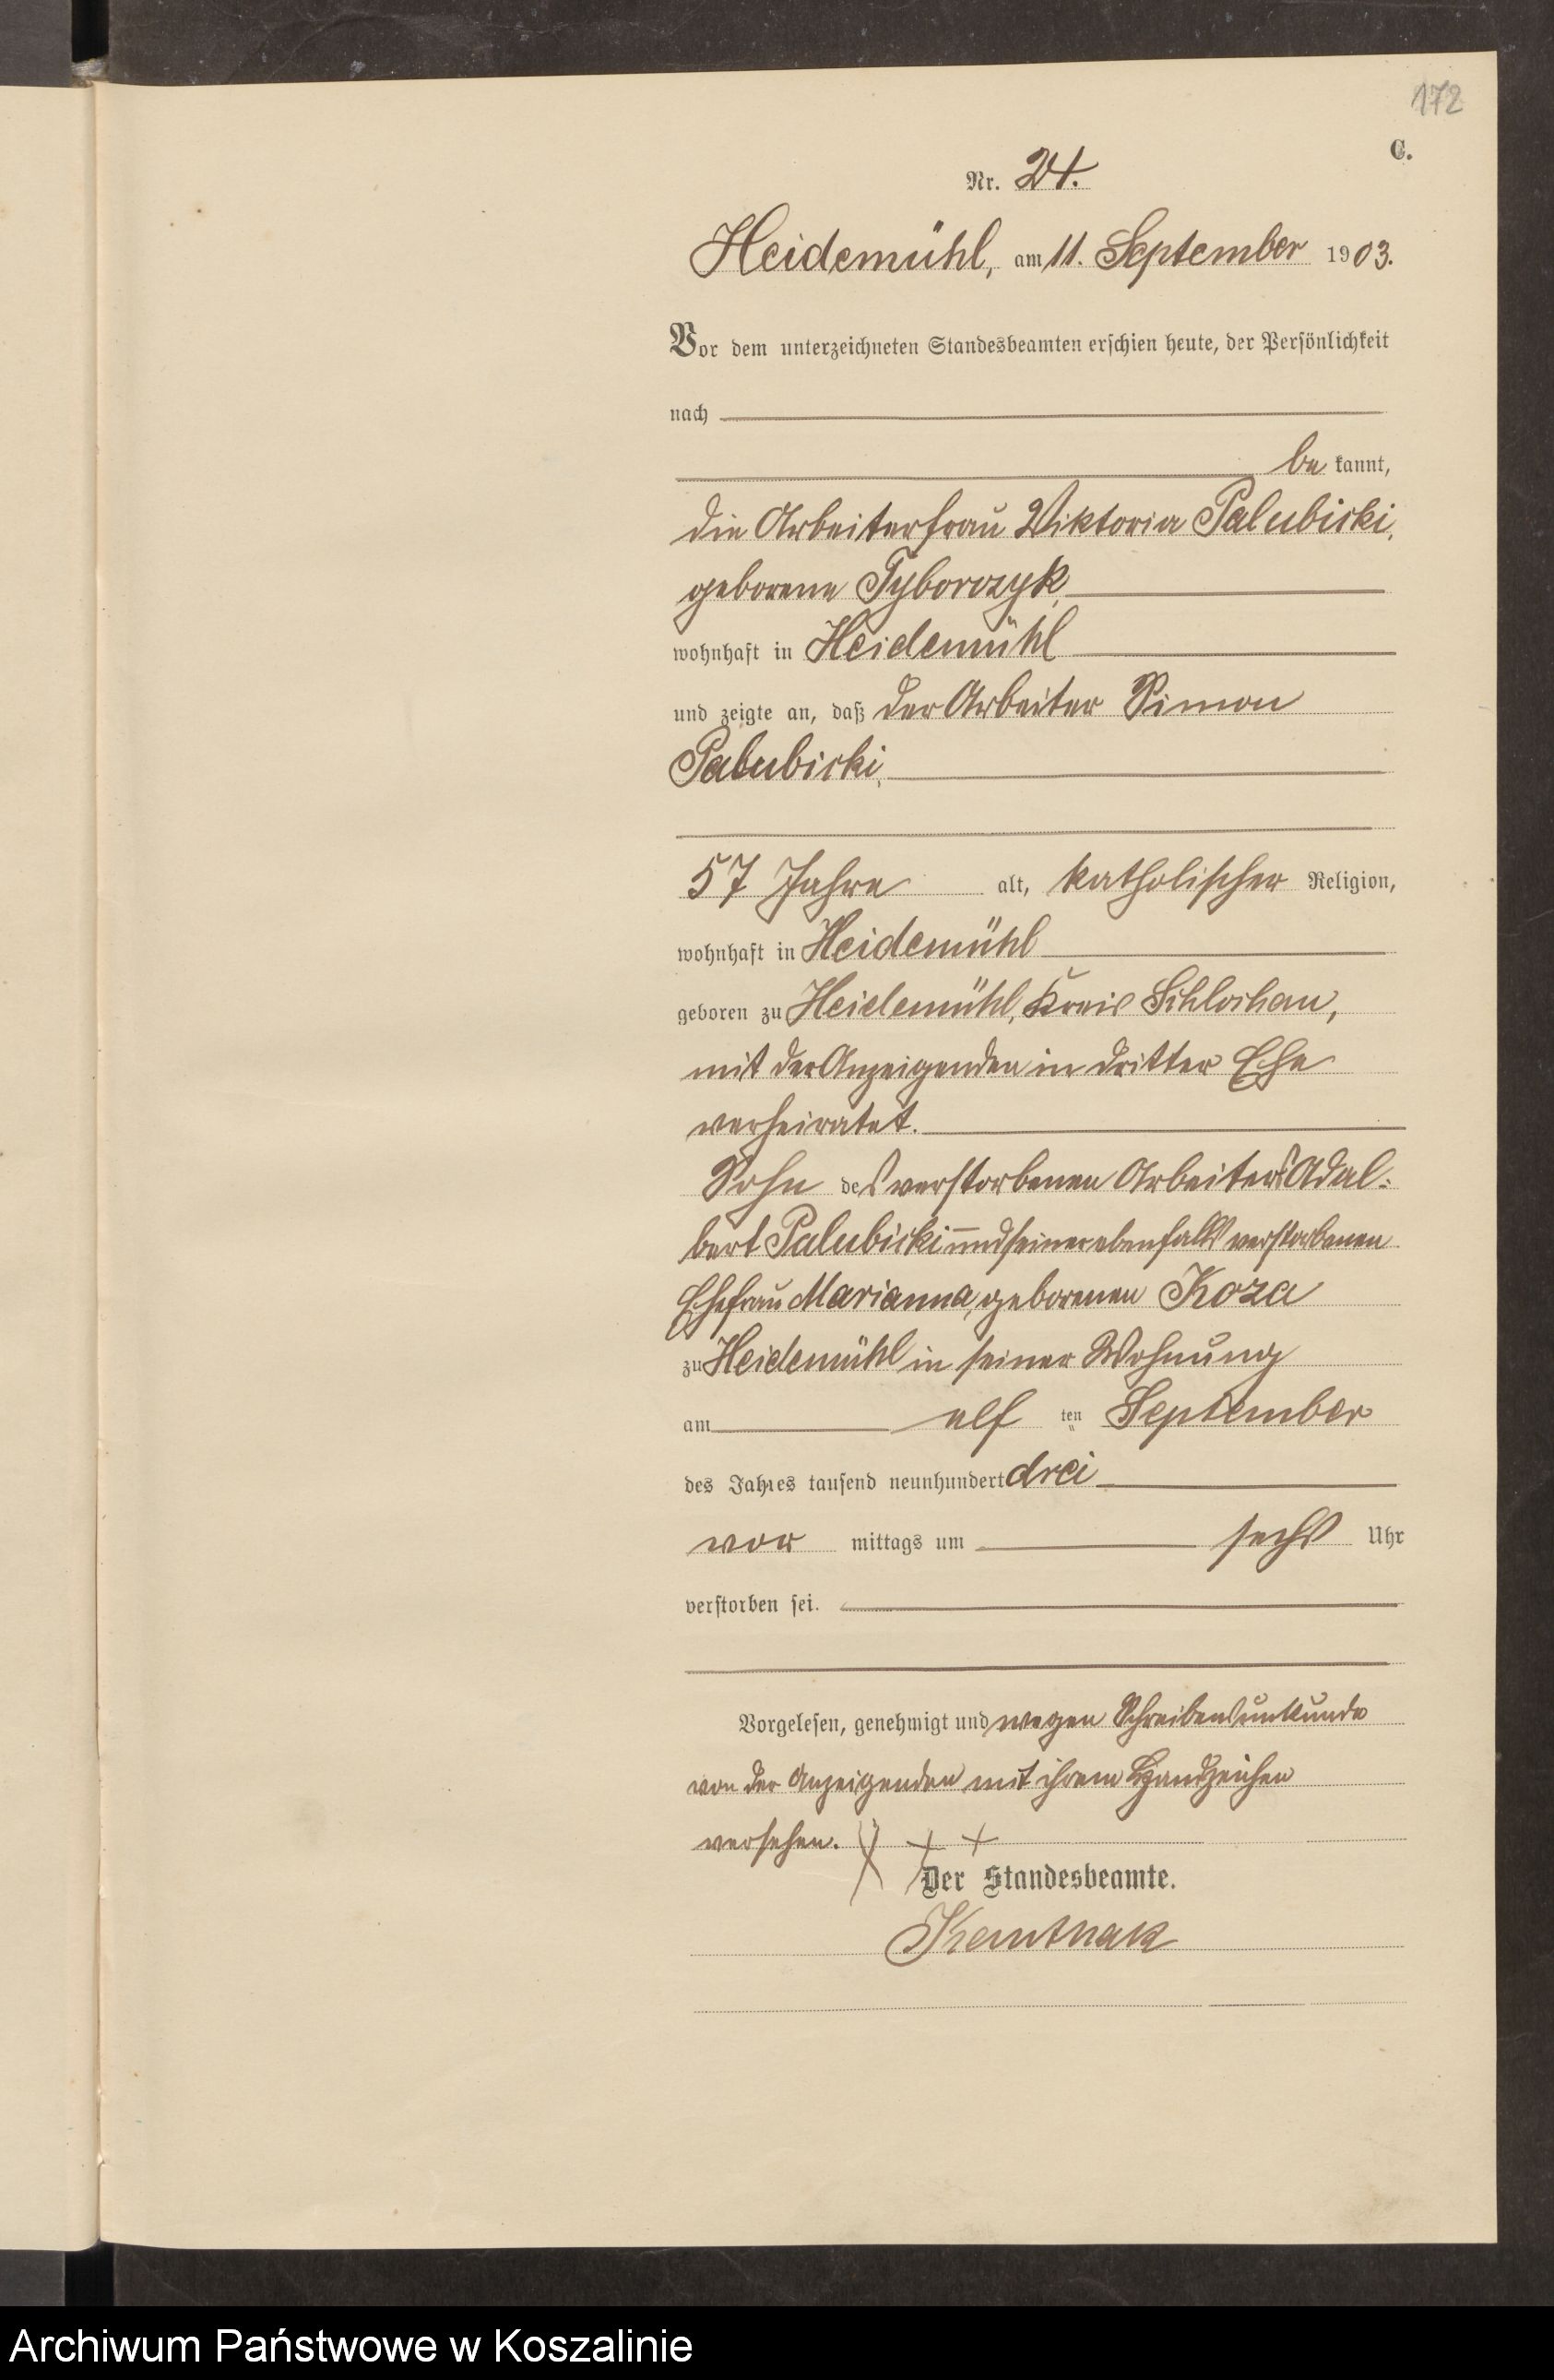 172
C.
Nr. 24.
Heidemühl, am 11. September 1903.
Vor dem unterzeichneten Standesbeamten erschien heute, der Persönlichkeit
nach
be kannt,
die Arbeiterfrau Wiktoria Palubicki,
geborene Tyborczyk,
wohnhaft in Heidemühl
und zeigte an, daß der Arbeiter Simon
Palubicki,
57 Jahre alt, katholischer Religion,
wohnhaft in Heidemühl
geboren zu Heidemühl, Kreis Schlochau,
mit der Anzeigenden in dritter Ehe
verheiratet.
Sohn des verstorbenen Arbeiters Adal-
bert Palubicki und seiner ebenfalls verstorbenen
Ehefrau Marianna, geborenen Koza
zu Heidemühl in seiner Wohnung
am elf ten September
des Jahres tausend neunhundert drei
vor mittags um sechs Uhr
verstorben sei.
Vorgelesen, genehmigt und wegen Schreibensunkunde
von der Anzeigenden mit ihrem Handzeichen
versehen. + + +
Der Standesbeamte.
Archiwum Państwowe w Koszalinie